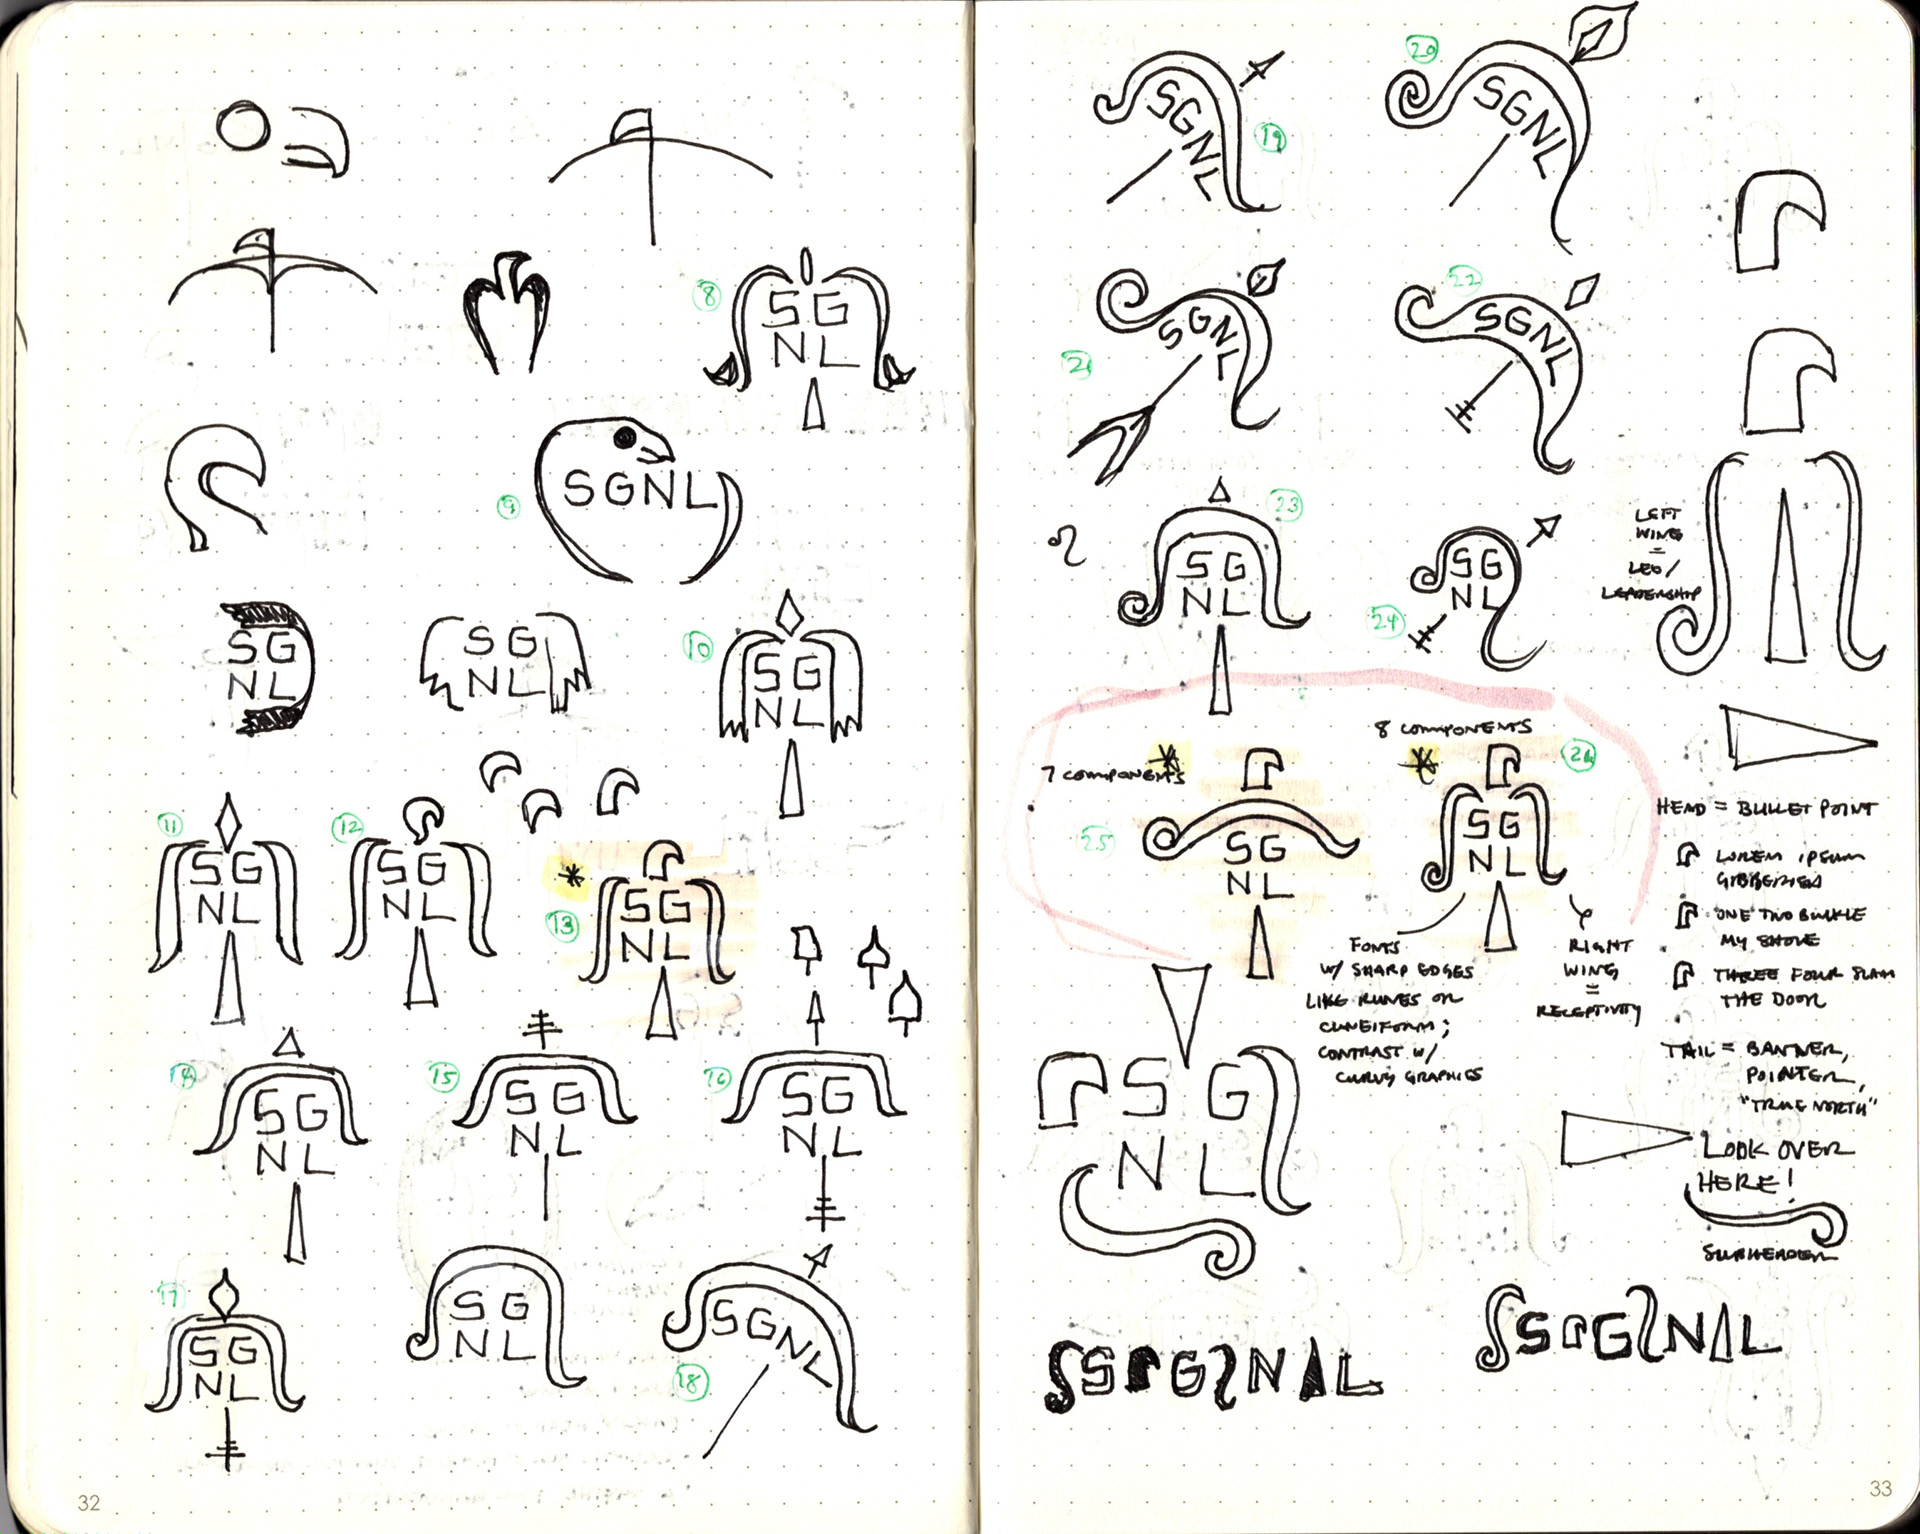 8
SG
NL
9
SGNL
SG
NL
SG
NL
10
SG
NL
11
SG
NL
12
SG
NL
*
13
SG
NL
14
SG
NL
15
SG
NL
16
SG
NL
17
SG
NL
SG
NL
18
SGNL
32
19
SGNL
20
SGNL
21
SGNL
22
SGNL
23
SG
NL
24
SG
NL
LEFT
WING
=
LEO/
LEADERSHIP
7 COMPONENTS
*
25
SG
NL
8 COMPONENTS
*
26
SG
NL
FONTS
W/ SHARP EDGES
LIKE RUNES OR
CUNEIFORM;
CONTRAST W/
CURVY GRAPHICS
RIGHT
WING
=
RECEPTIVITY
HEAD = BULLET POINT
LOREM IPSUM
ONE TWO BUCKLE
MY SHOE
THREE FOUR SLAM
THE DOOR
TAIL = BANNER,
POINTER,
"TRUE NORTH"
LOOK OVER
HERE!
SUBHEADER
SG
NL
SGNL
SGNL
33